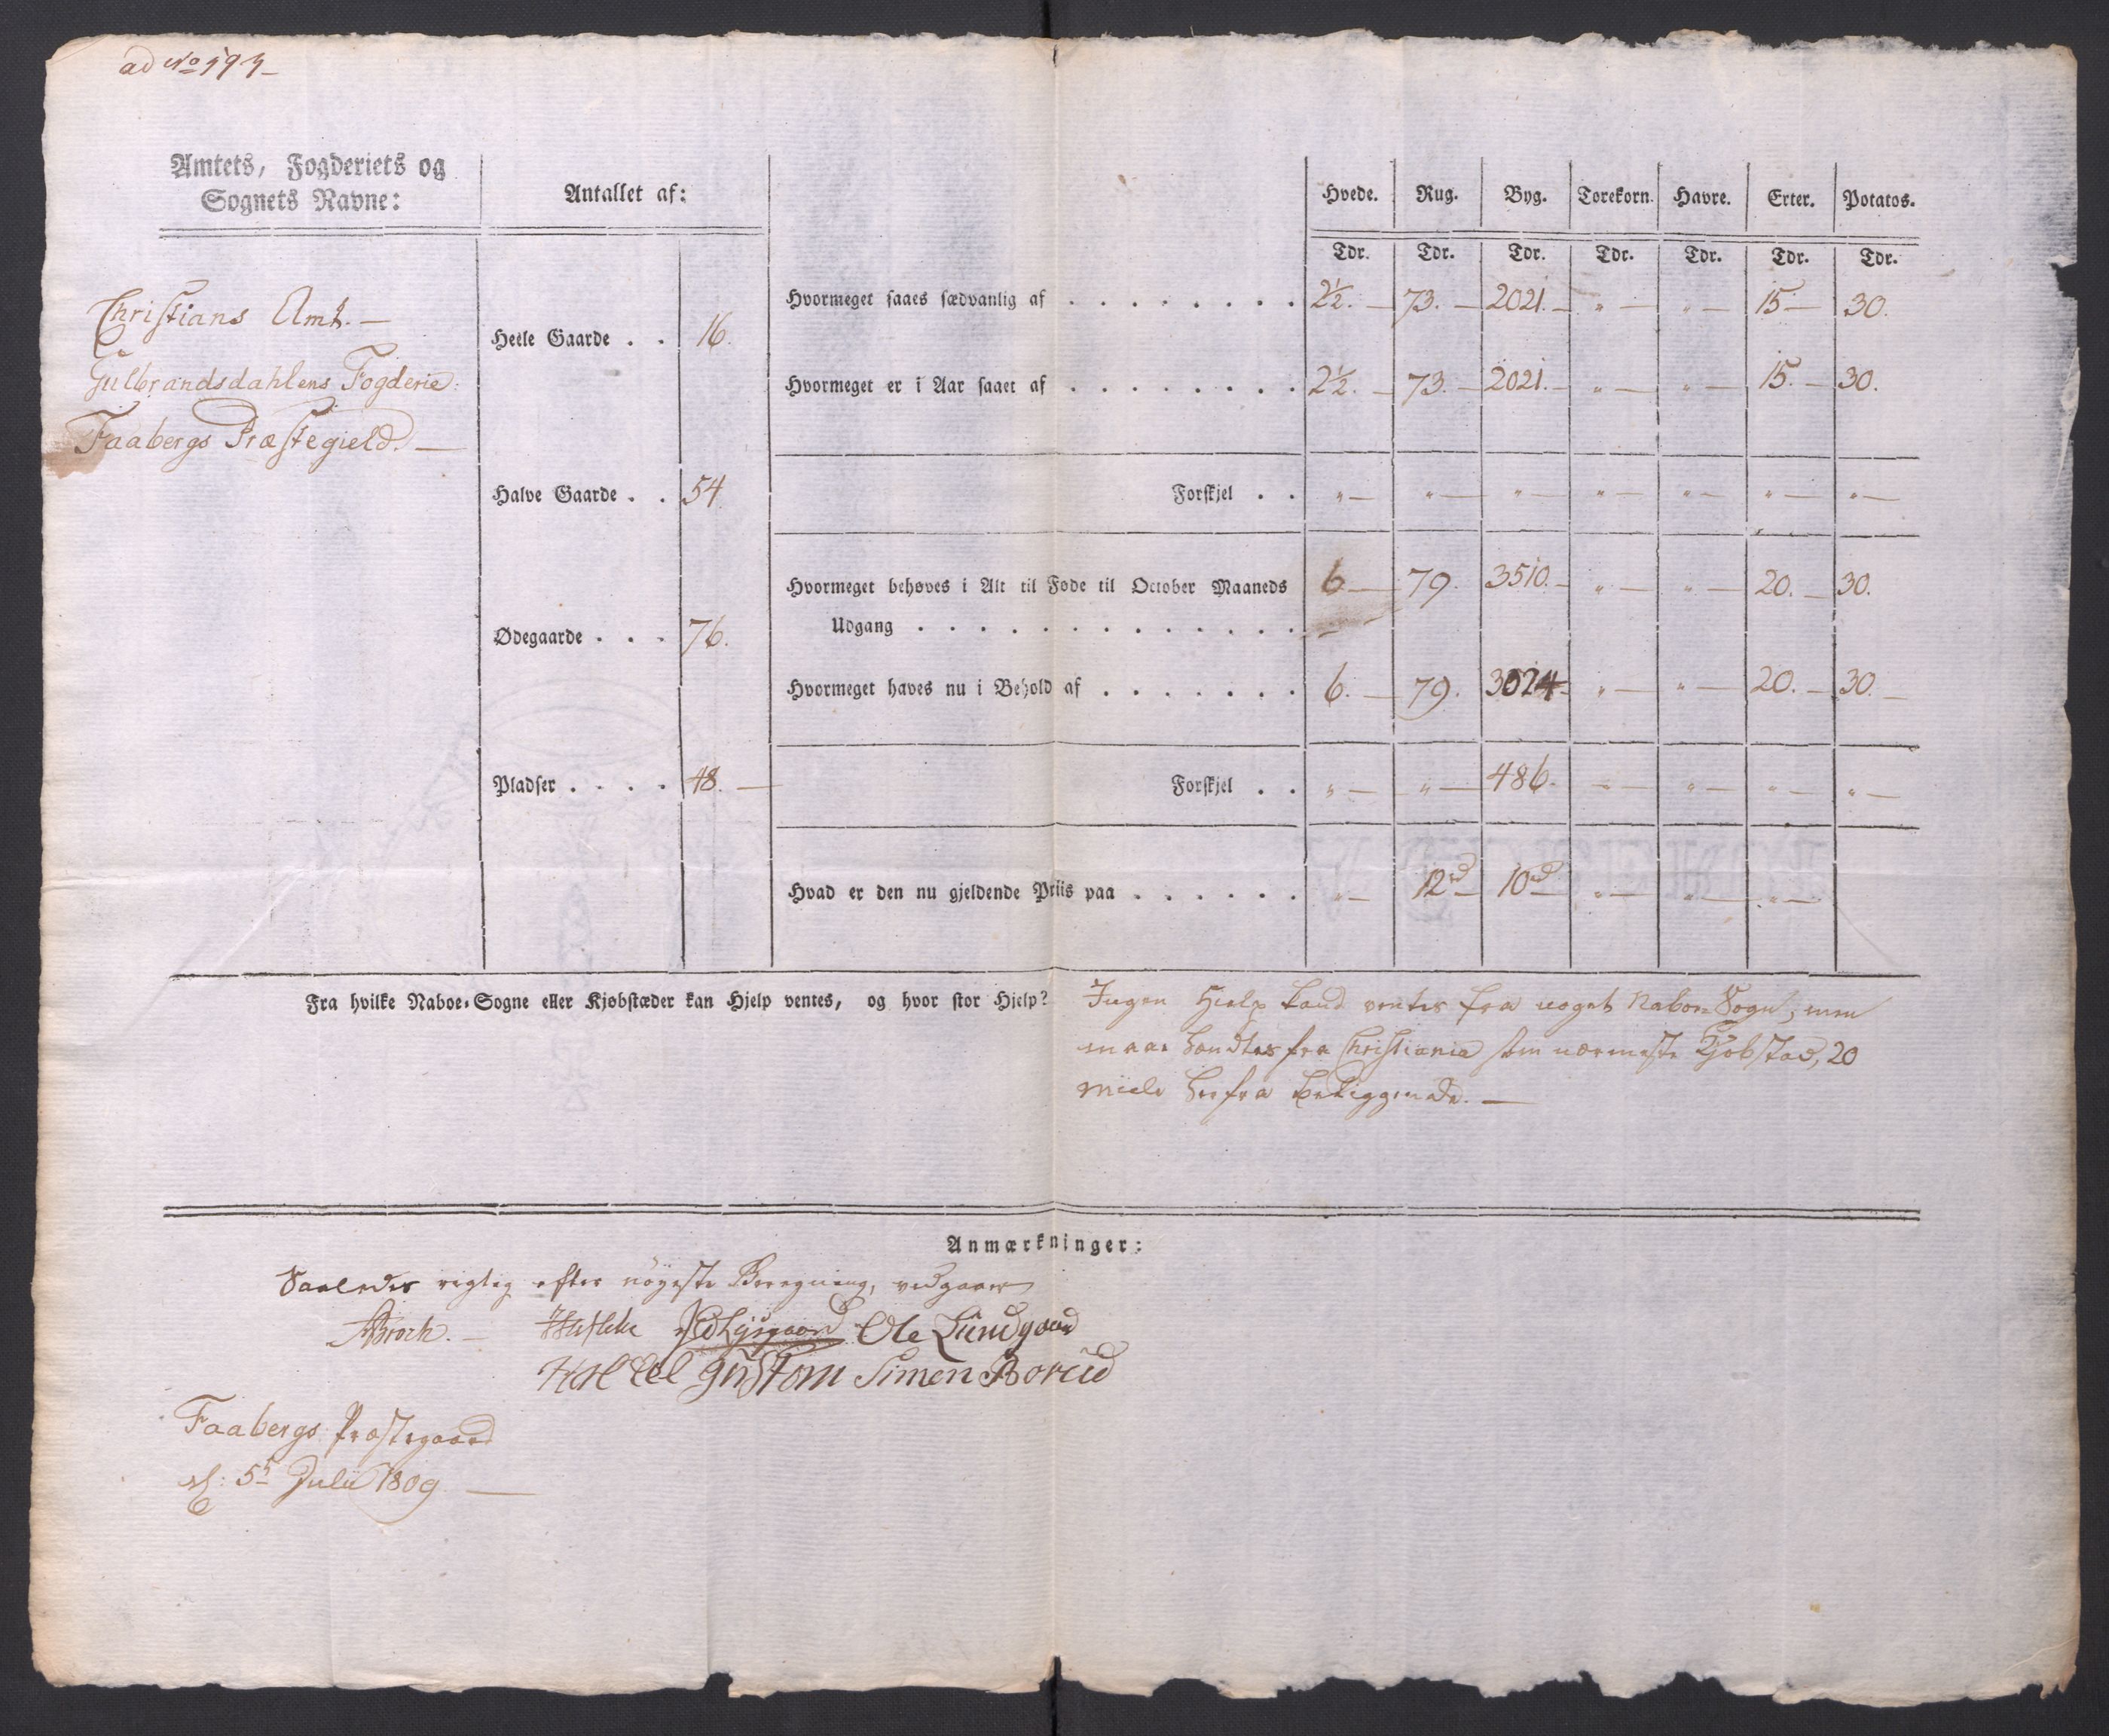 ad No 191
Amtets, Fogderiets og
Sognets Navne:
Antallet af:
Hvede. Rug. Byg. Torekorn. Havre. Erter. Potatos.
Tdr. Tdr. Tdr. Tdr. Tdr. Tdr. Tdr.
Christians Amt. —
Gulbrandsdahlens Fogderie.
Faabergs Præstegield. —
Heele Gaarde . . 16.
Halve Gaarde . . 54.
Ødegaarde . . . 76.
Pladser . . . . 48. —
Hvormeget saaes sædvanlig af . . . . . . . . 2½. — 73. — 2021. — " — " — 15 — 30.
Hvormeget er i Aar saaet af . . . . . . . . 2½. — 73. — 2021. — " — " — 15. — 30.
Forskjel . . " — " — " — " — " — " — " —
Hvormeget behøves i Alt til Føde til October Maaneds 6 — 79. 3510. — " — " — 20. — 30.
Udgang . . . . . . . . . . . . .
Hvormeget haves nu i Behold af . . . . . . . 6. — 79. 3024 — " — " — 20. — 30. —
Forskjel . . " — " — 486. " — " — " — " —
Hvad er den nu gjeldende Priis paa . . . . . . " — 12 rd — 10 rd — " — " — " —
Fra hvilke Naboe-Sogne eller Kjøbstæder kan Hjelp ventes, og hvor stor Hjelp?
Ingen Hielp kand ventes fra noget Naboe Sogn, men
maae hendtes fra Christiania som nærmeste Kjøbstad, 20
Miile herfra beliggende. —
Anmærkninger:
Saaledes rigtig efter nøyeste Beregning, vedgaaes
Broch. — Lysgaard Ole Lundgaard
Simen Borud
Faabergs Præstegaard
d: 5te Julii 1809 —